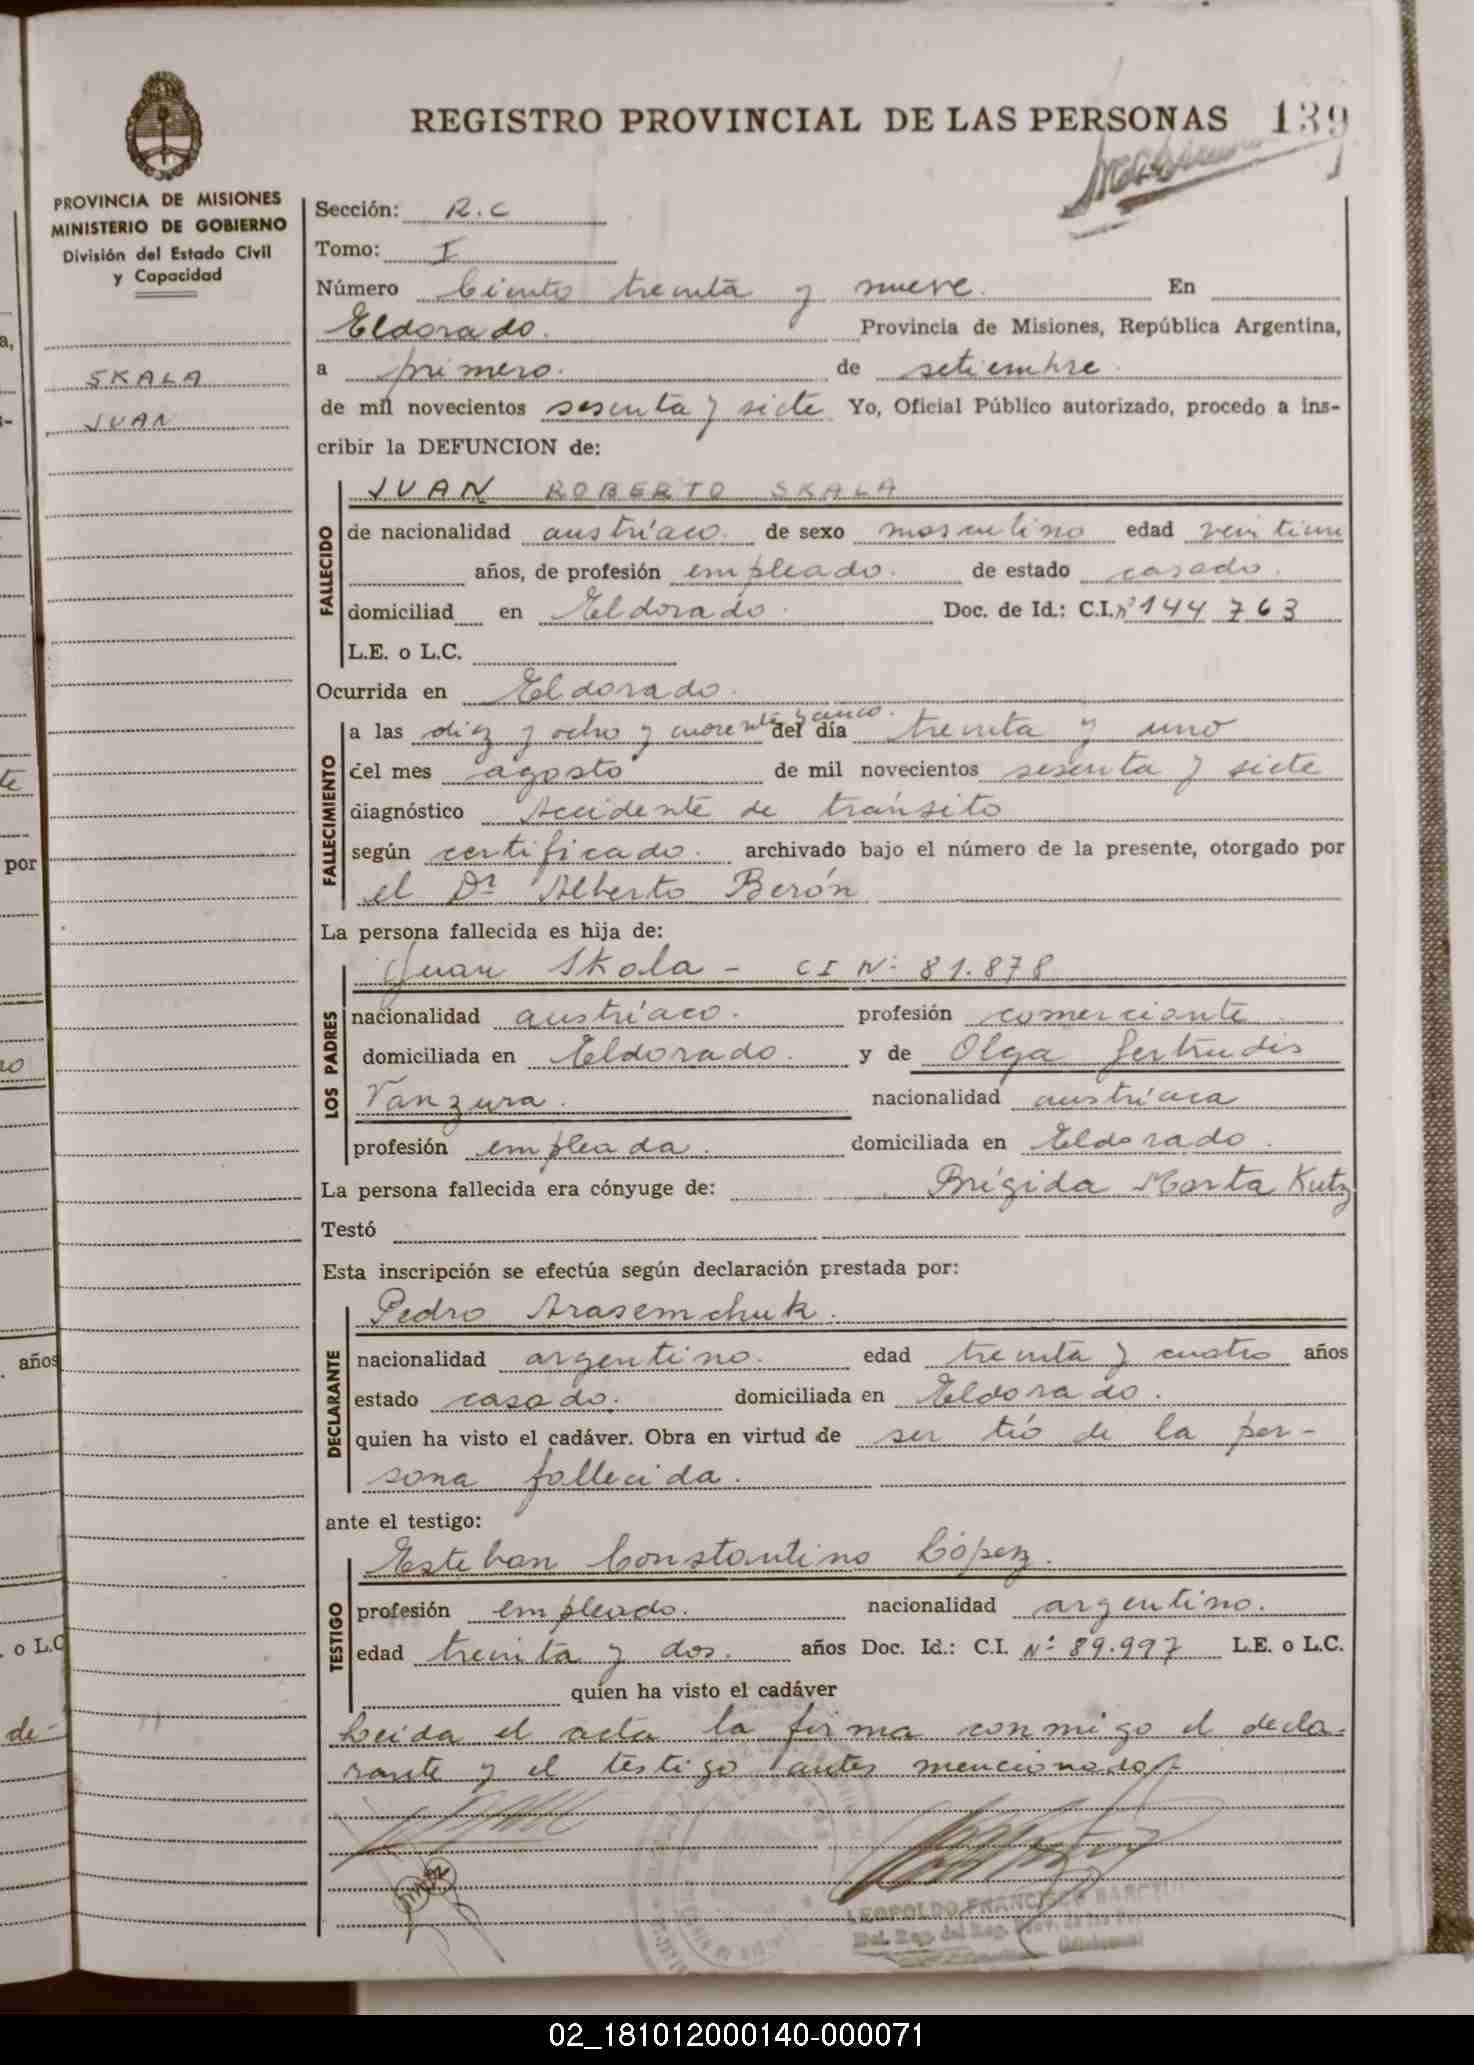 REGISTRO PROVINCIAL DE LAS PERSONAS 139
PROVINCIA DE MISIONES
MINISTERIO DE GOBIERNO
División del Estado Civil
y Capacidad
SKALA
JUAN
Sección: R.C
Tomo: I
Número Ciento treinta y nueve. En
Eldorado. Provincia de Misiones, República Argentina,
a primero. de setiembre
de mil novecientos sesenta y siete Yo, Oficial Público autorizado, procedo a ins-
cribir la DEFUNCION de:
FALLECIDO
JUAN ROBERTO SKALA
de nacionalidad austríaco. de sexo masculino edad veintiun
años, de profesión empleado. de estado casado.
domiciliad en Eldorado. Doc. de Id.: C.I. Nº 144 763
L.E. o L.C.
Ocurrida en Eldorado.
FALLECIMIENTO
a las diez y ocho y cuarenta y cinco. del día treinta y uno
del mes agosto de mil novecientos sesenta y siete
diagnóstico Accidente de tránsito
según certificado. archivado bajo el número de la presente, otorgado por
el Dr Alberto Berón
La persona fallecida es hija de:
LOS PADRES
Juan Skala - CI Nº 81.878
nacionalidad austríaco. profesión comerciante
domiciliada en Eldorado. y de Olga Gertrudis
Vanzura. nacionalidad austríaca
profesión empleada. domiciliada en Eldorado.
La persona fallecida era cónyuge de: Brígida Marta Kutz
Testó
Esta inscripción se efectúa según declaración prestada por:
DECLARANTE
Pedro Arasemchuk.
nacionalidad argentino. edad treinta y cuatro años
estado casado. domiciliada en Eldorado.
quien ha visto el cadáver. Obra en virtud de ser tío de la per-
sona fallecida.
ante el testigo:
TESTIGO
Esteban Constantino López.
profesión empleado. nacionalidad argentino.
edad treinta y dos. años Doc. Id.: C.I. Nº 89.997 L.E. o L.C.
quien ha visto el cadáver
Leida el acta la firma conmigo el decla-
rante y el testigo antes mencionado.-
LEOPOLDO FRANCISCO
a,
por
años
o L.C
de-
02_181012000140-000071